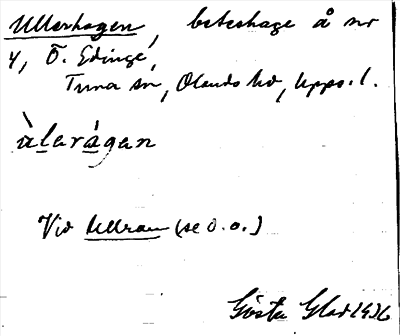 Ullerhagen, beteshage å nr
4, Ö. Edinge,
Tuna sn, Olands hd, Upps. l.
àlerágan
Vid Ullran (se d. o.)
Gösta Glad 1936